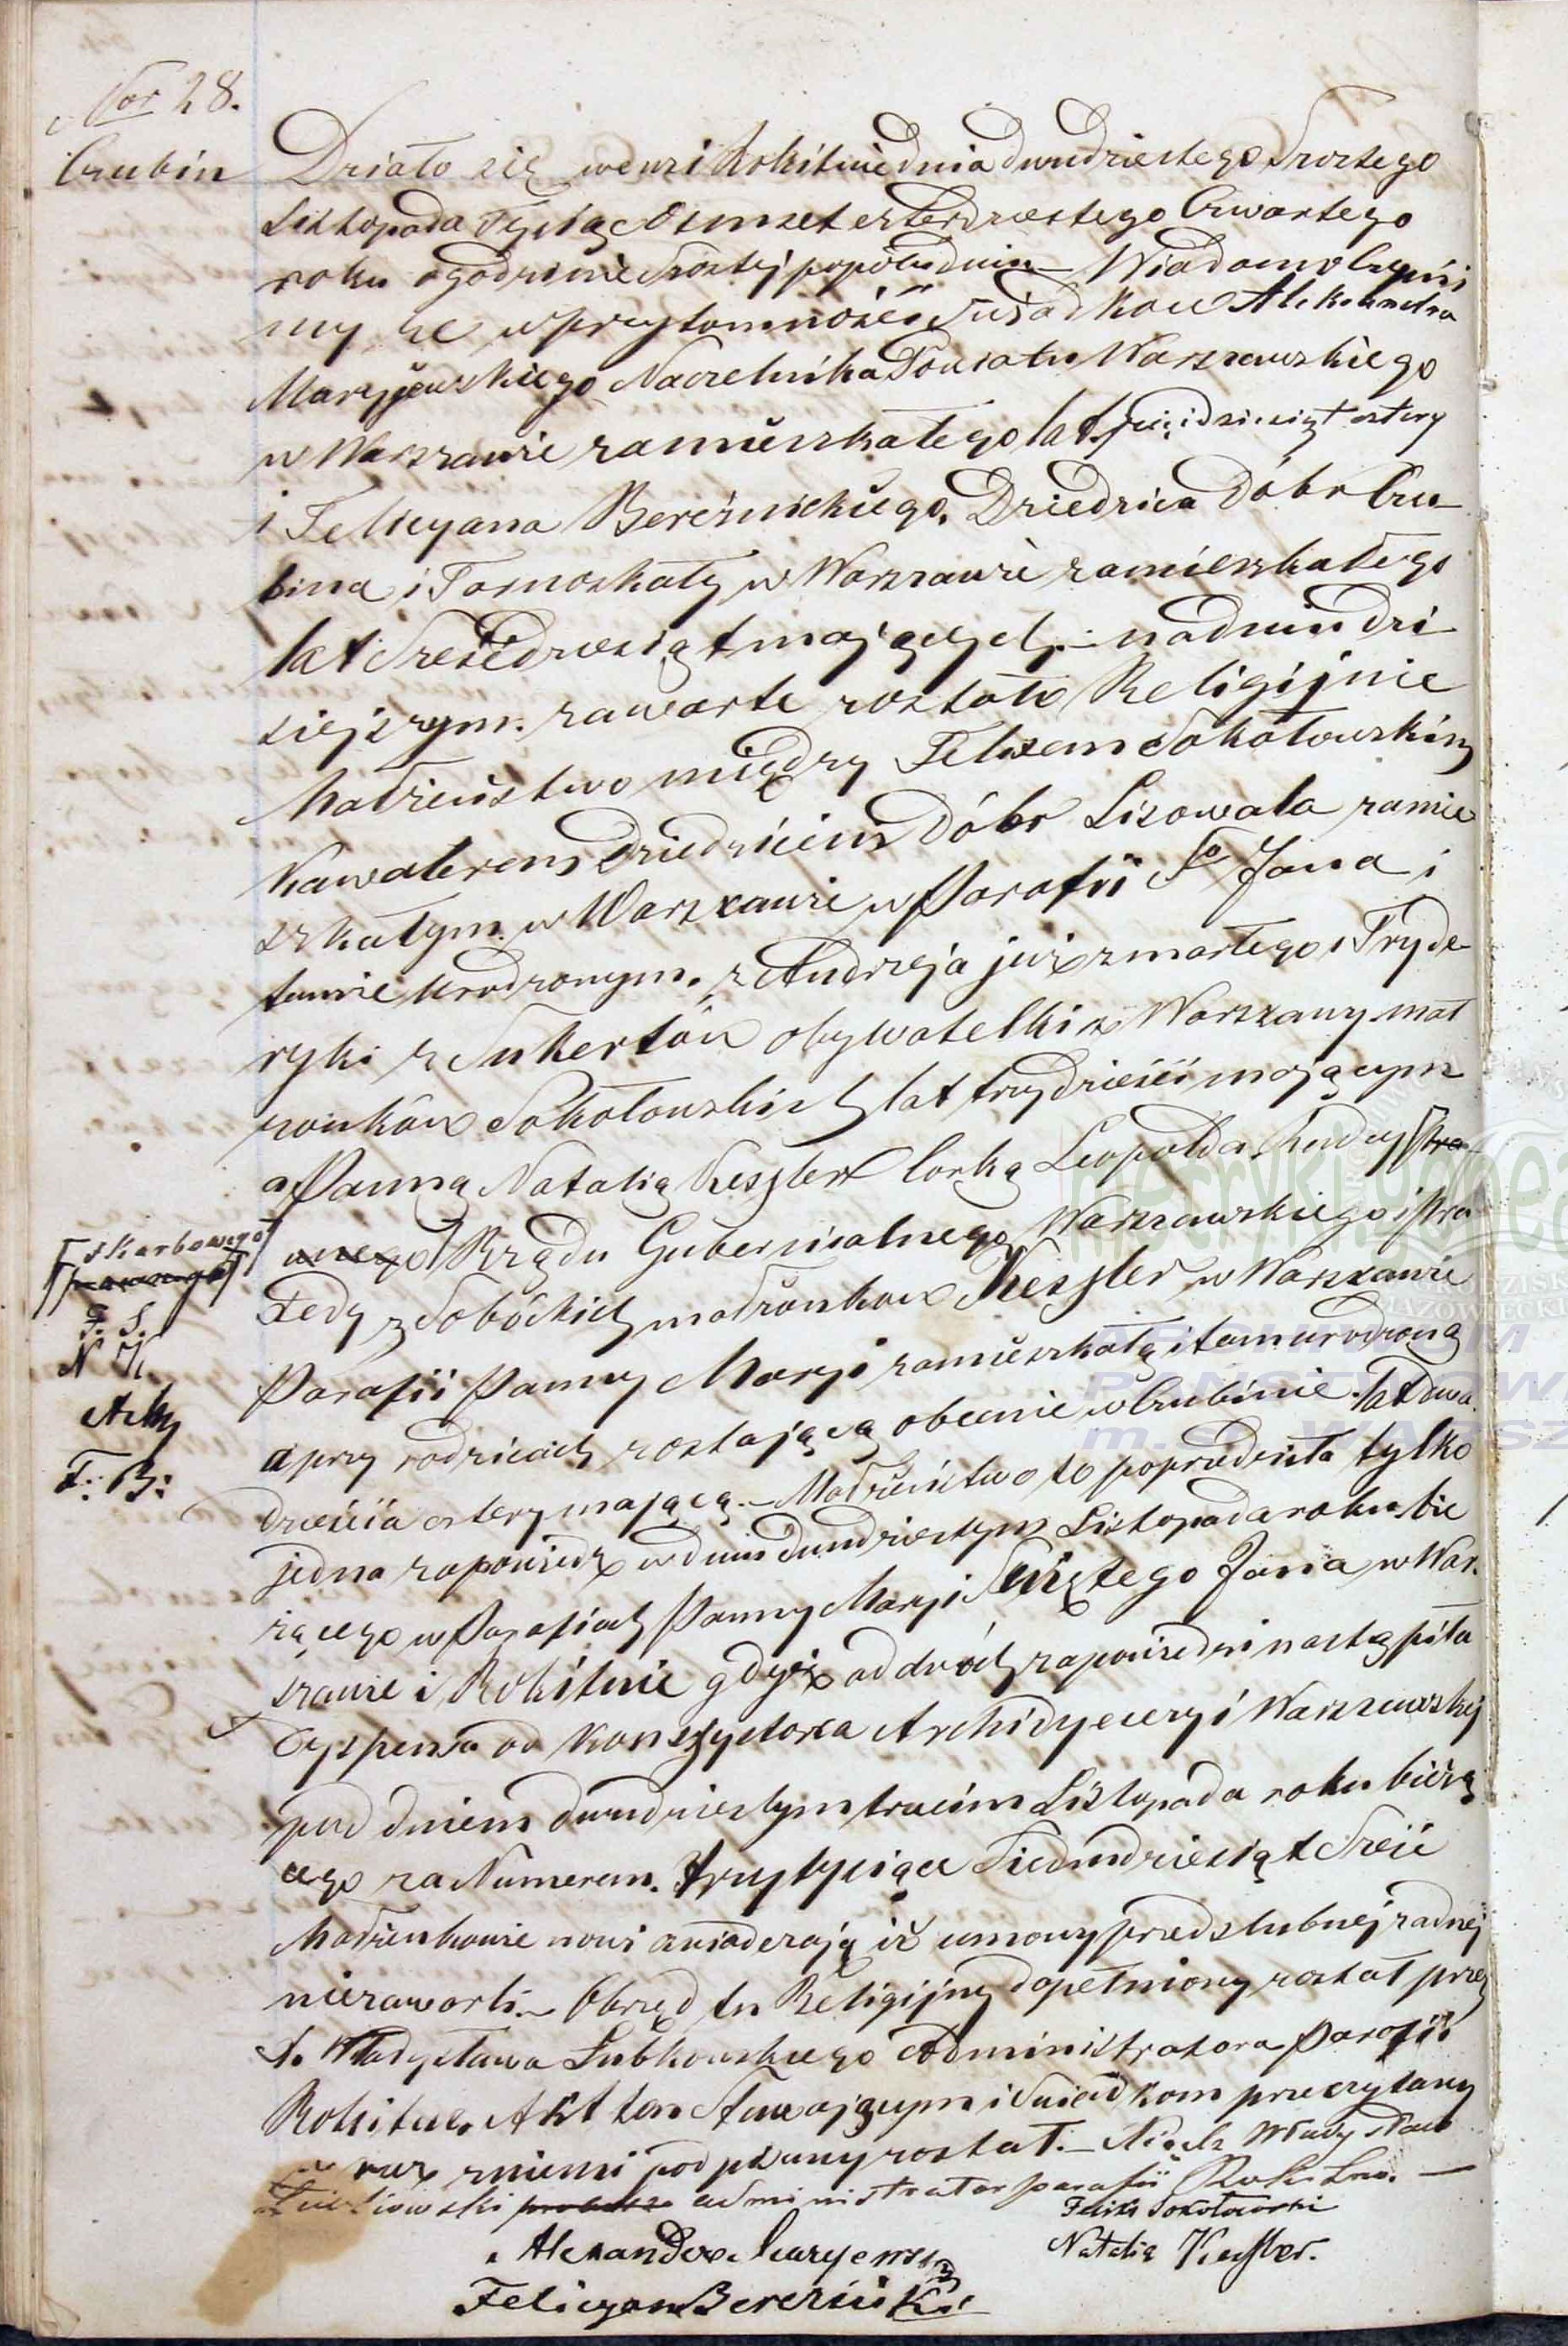 Nor 28.
Czubin
Działo się we wsi Rokitnie dnia dwudziestego Szóstego
Listopada Tysiąc Osmset czterdziestego Czwartego
roku o godzinie Szóstej popołudniu – Wiadomo Czyni
my że w przytomności Świadków Alexandra
Naczelnika Powiatu Warszawskiego
w Warszawie zamieszkałego lat pięćdziesiąt cztery
i Felicyana Bereźnickiego, Dziedzica Dóbr Czu-
bina i w Warszawie zamieszkałego
lat Sześćdziesiąt mających. – na dniu dzi
siejszym zawarte zostało Religijnie
Małżeństwo między Felixem Sokołowskim
Kawalerem Dziedzicem Dóbr zamie
szkałym w Warszawie w Parafii So Jana i
tamże urodzonym z Andrzeja już zmarłego i Fryde
ryki z obywatelki z Warszawy mał
żonków Sokołowskich lat trzydzieści mającym
a Panną Natalią Kessler Corką Leopolda
Rządu Gubernialnego Warszawskiego i Pra
xedy z Sobóckich małżonków Kessler w Warszawie
Parafii Panny Maryi zamieszkałą i tam urodzoną
a przy rodzicach zostającą obecnie w Czubinie lat dwa
dzieścia cztery mającą. – Małżeństwo to poprzedziła tylko
jedna zapowiedź w dniu dwudziestym Listopada roku bie
żącego w Parafiach Panny Maryi Świętego Jana w War.
szawie i Rokitnie gdyż od dwóch zapowiedzi nastąpiła
Dyspensa od Konsystorza Archidyecezyi Warszawskiej
pod dniem dwudziestym trzecim Listopada roku bieżą
cego za Numerem trzy tysiące Siedmdziesiąt Sześć
Małżonkowie nowi oświadczają iż umowy przedślubnej żadnej
niezawarli. – Obrzęd ten Religijny dopełniony został przez
X. Władysława Lubkowskiego Administratora Parafii
Rokitno. Akt ten Stawającym i Świadkom przeczytany
przez niemi podpisany został. – Xiądz Władysław
administrator parafii Rokitno. –
Felix Sokołowski
Natalia Kessler.
Alexander
Felicyan Bereźnicki
skarbowego
F. S.
N K
A M
F. B.